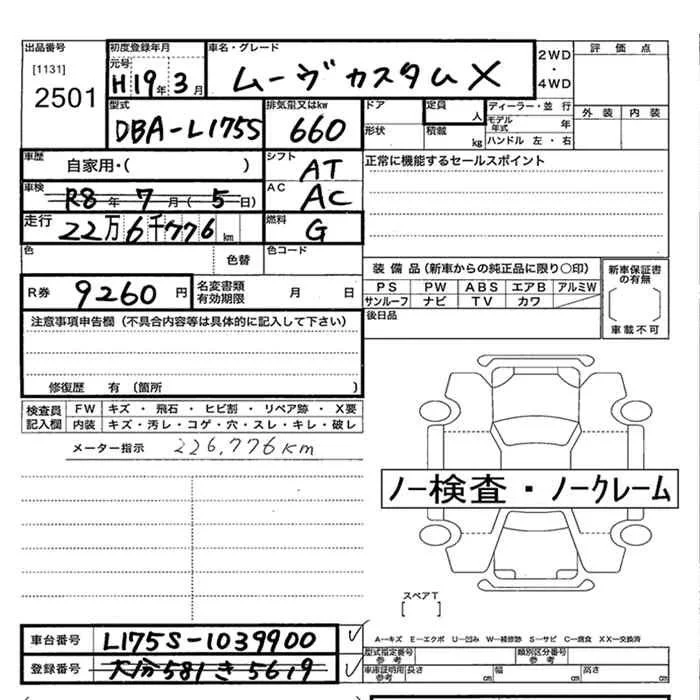 出品番号 初度登録年月 車名・グレード 評価点
[1131] 元号 2WD
2501 H19年3月 ムーヴカスタムX ・
4WD
外装 内装
型式 排気量又はkw ドア 定員 人 ディーラー・並行
DBA-L175S 660 モデル年式 年
形状 積載 kg ハンドル 左・右
車歴 自家用・( ) シフト AT 正常に機能するセールスポイント
車検 R8年7月(5日) AC AC
走行 22万6千776km 燃料 G
色 色替 色コード
装備品(新車からの純正品に限り○印) 新車保証書の有無
R券 9260円 名変書類有効期限 月 日 PS PW ABS エアB アルミW
サンルーフ ナビ TV カワ
車載不可
注意事項申告欄(不具合内容等は具体的に記入して下さい) 後日品
修復歴 有 (箇所 )
検査員 FW キズ・飛石・ヒビ割・リペア跡・X要
記入欄 内装 キズ・汚レ・コゲ・穴・スレ・キレ・破レ
メーター指示 226,776km
ノー検査・ノークレーム
スペアT
[ ]
車台番号 L175S-1039900 A－キズ E－エクボ U－凹み W－補修跡 S－サビ C－腐食 XX－交換済
型式指定番号 参考 類別区分番号 参考
登録番号 大分581き5619 車庫証明用参考 長さ cm 幅 cm 高さ cm